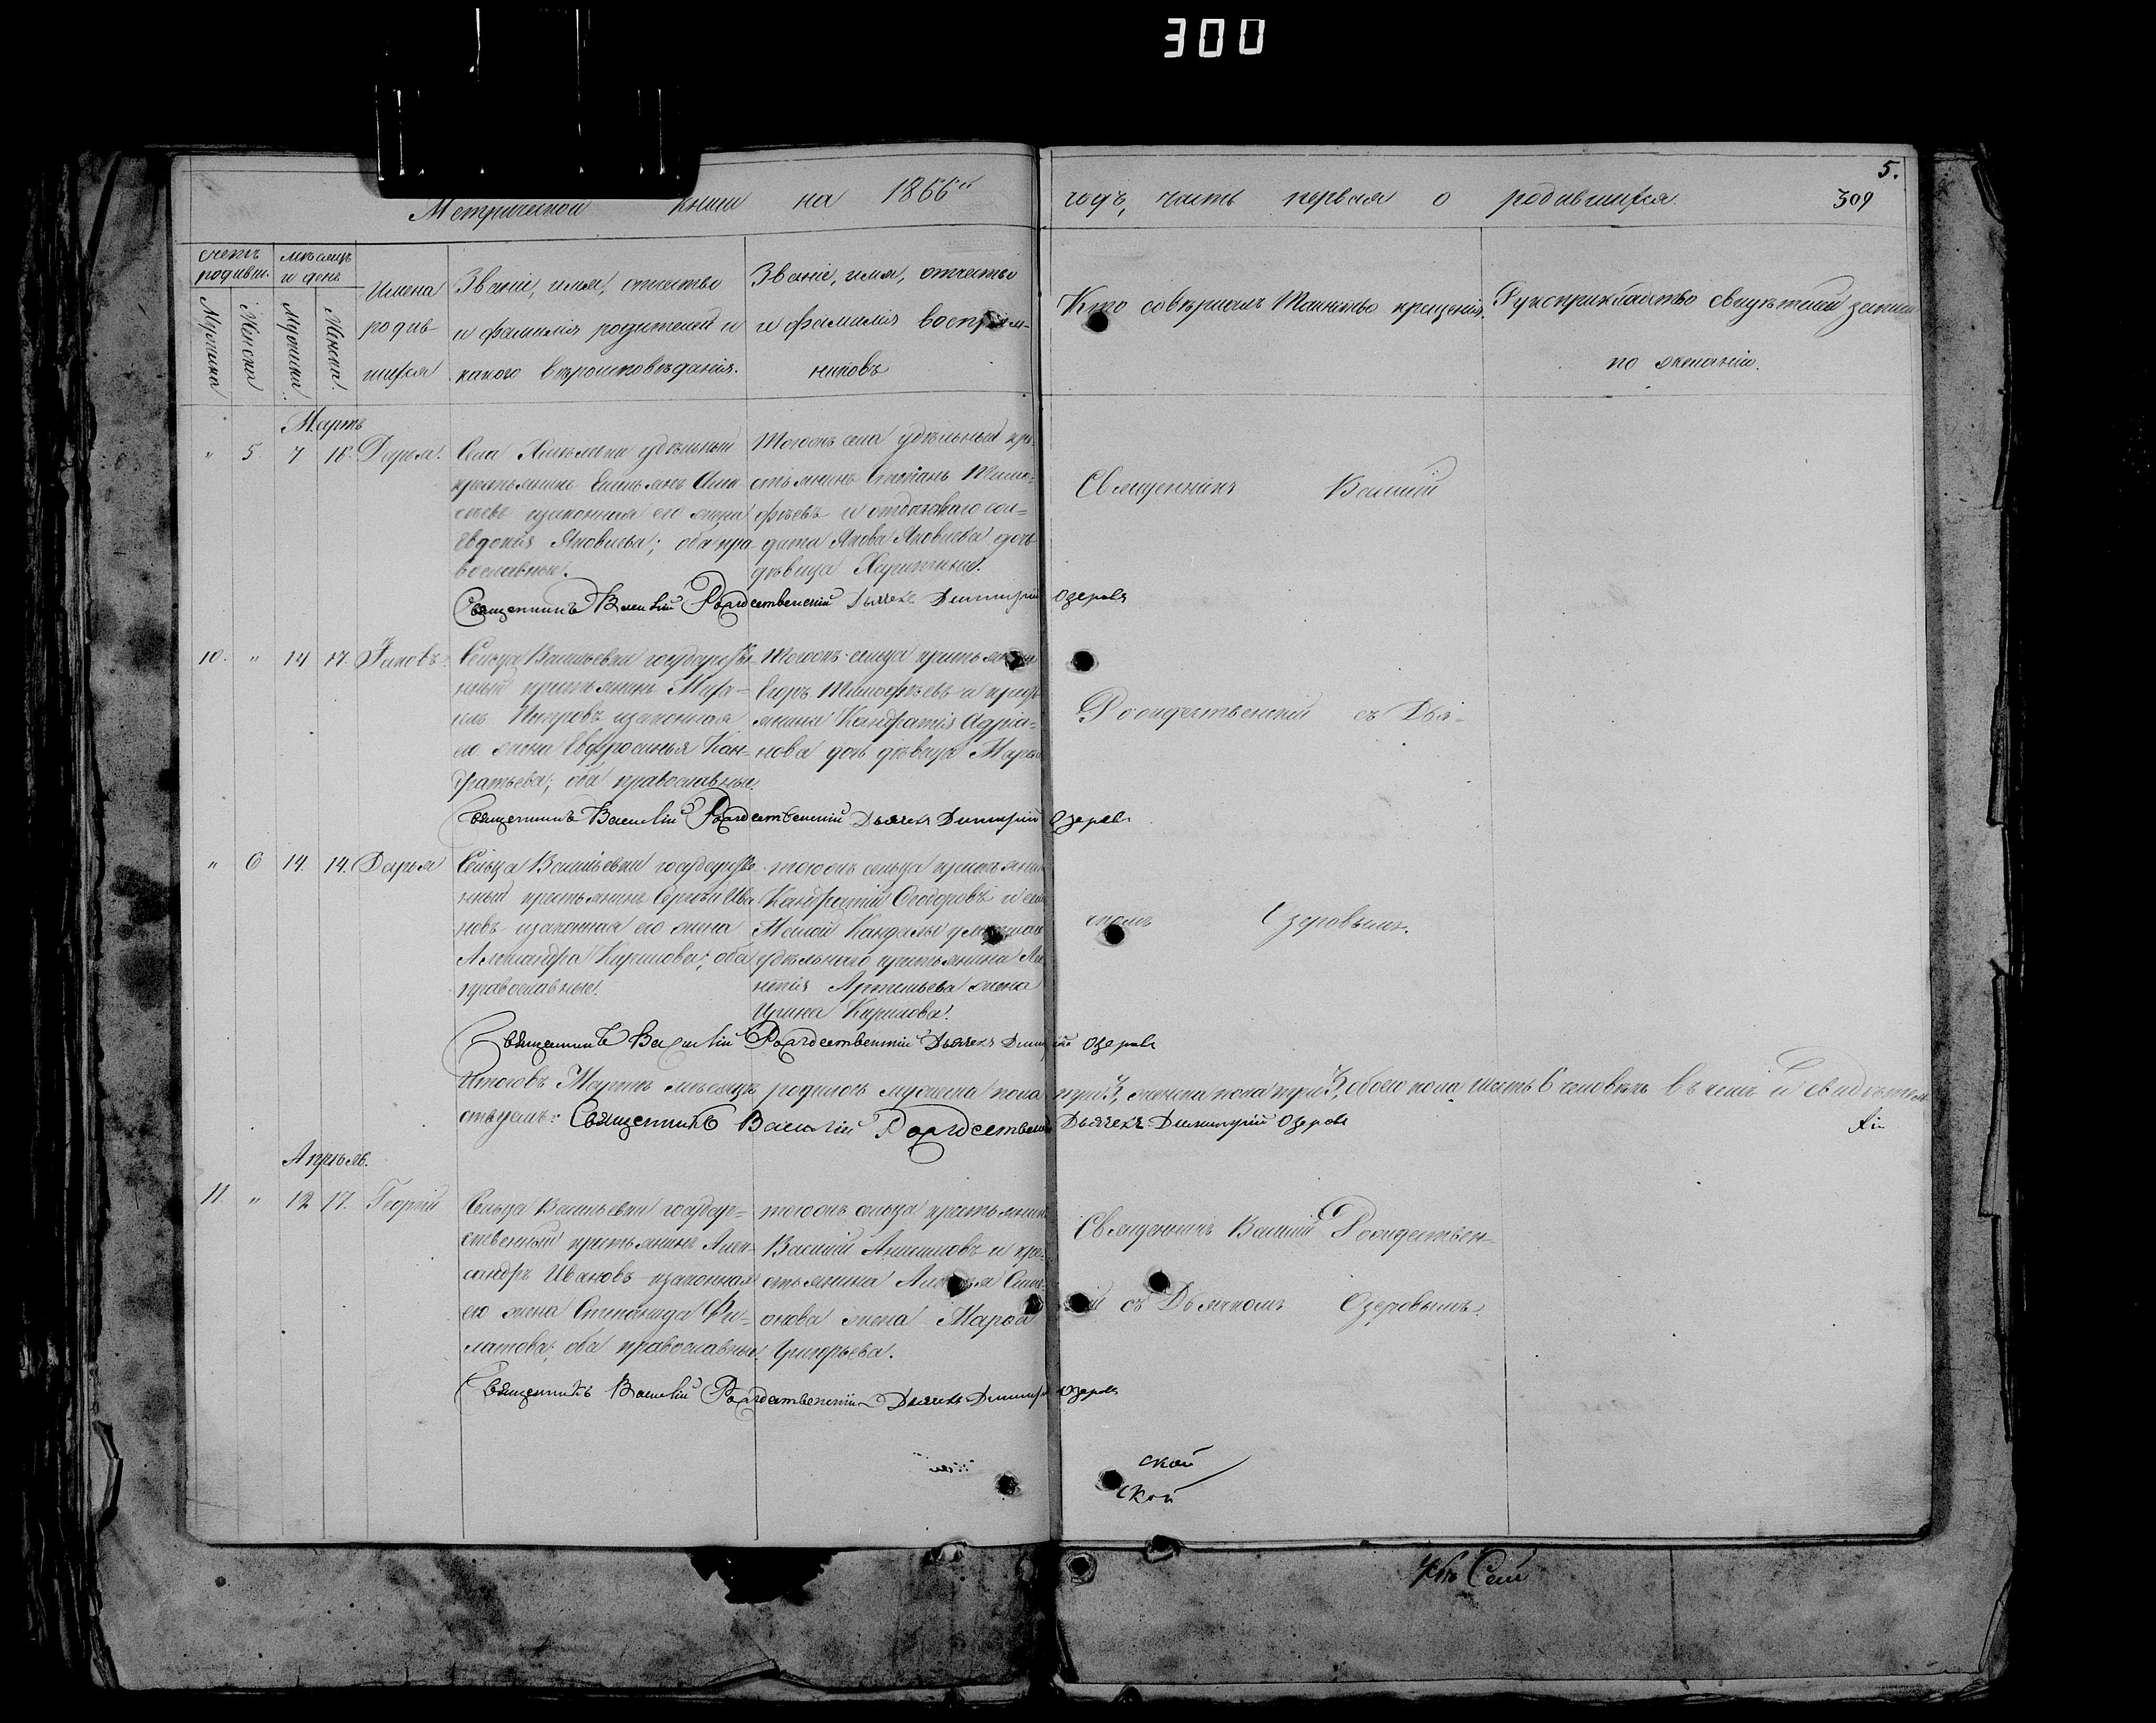 300
5.
Метрической книги на 1866й годъ, часть первая о родившихся 309
счетъ родивш.
мѣсяцъ и день
Мужеска
Женска
Мужеска
Женска
Имена
родив-
шихся
Званіе, имя, отчество
и фамилія родителей и
какого вѣроисповѣданія.
Званіе, имя, отчество
и фамилія воспріем-
никовъ
Кто совершалъ Таинство крещенія.
Рукоприкладство свидѣтелей записи
по желанію.
Мартъ
" 5 7 18 Дарья.
Села удѣльный
крестьянинъ Емельянъ
и законная его жена
Евдокія Яковлева; оба пра-
вославные.
Тогожъ села удѣльный кре-
стьянинъ Степанъ Тимо-
фѣевъ и сол-
дата Якова Яковлева дочь
дѣвица Харитина.
Священникъ Василій
Священникъ Василій Рождественскій Дьячекъ Димитрій Озеровъ
10. " 14 17. Іаковъ.
Сельца Васильевки государстве-
нный крестьянинъ
Петровъ и законная
его жена Евфросинья Кан-
дратьева; оба православные.
Тогожъ сельца крестьянинъ
Егоръ Тимофѣевъ и кресть-
янина Кандратія Адріа-
нова дочь дѣвица Марья
Рождественскій съ Дья-
Священникъ Василій Рождественскій Дьячекъ Димитрій Озеровъ
" 6 14. 14. Дарья
Сельца Васильевки государстве-
нный крестьянинъ Сергѣй Ива-
новъ и законная его жена
Александра Кирилова; оба
православные.
тогожъ сельца крестьянинъ
Кандратій Ѳеодоровъ и
Малой Кандалы
удѣльнаго крестьянина
Артемьева жена
Ирина Кирилова.
чкомъ Озеровымъ.
Священникъ Василій Рождественскій Дьячекъ Димитрій Озеровъ
Итого въ Мартѣ мѣсяцѣ родилось мужеска пола три 3, женска пола три 3, обоего пола шесть 6 человѣкъ въ чемъ и свидѣтель-
ствуемъ: Священникъ Василій Рождественскій Дьячекъ Димитрій Озеровъ
Апрѣль.
11. " 12 17. Георгій
Сельца Васильевки государ-
ственный крестьянинъ Алек-
сандръ Ивановъ и законная
его жена Степанида Фи-
латова; оба православные.
тогожъ сельца крестьянинъ
Василій Анисимовъ и кре-
стьянина Алексѣя Сим-
онова жена Марѳа
Григорьева.
Священникъ Василій Рождествен-
скій съ Дьячкомъ Озеровымъ.
Священникъ Василій Рождественскій Дьячекъ Димитрій Озеровъ
ской
ской